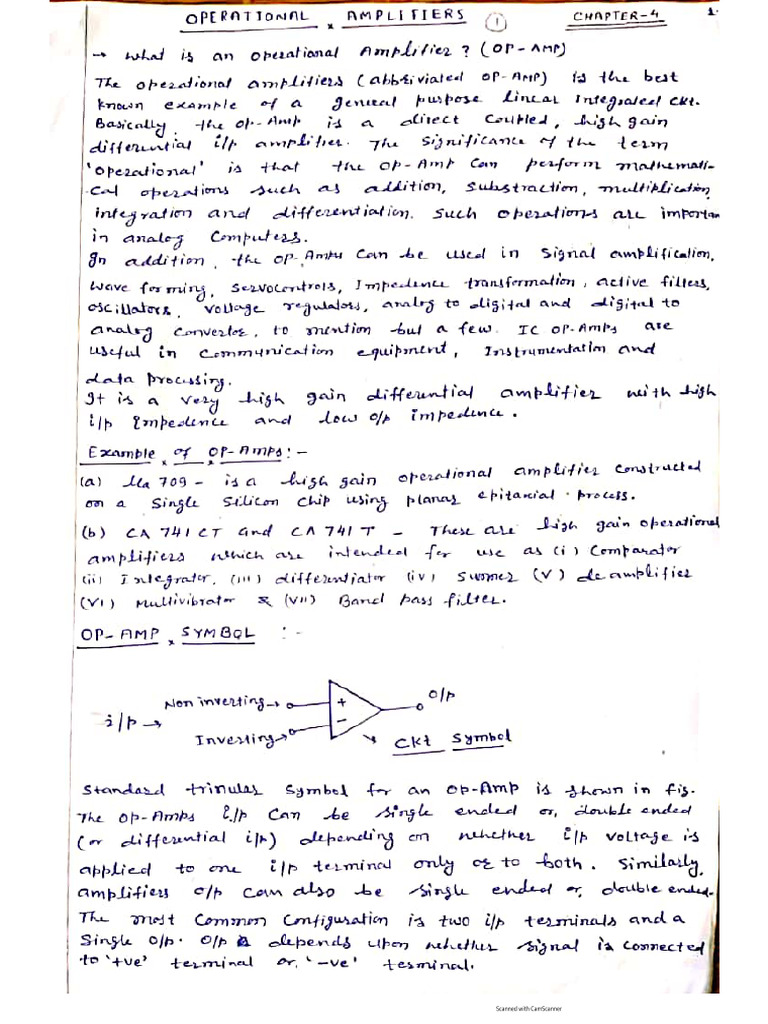 OPERATIONAL x AMPLIFIERS ① CHAPTER-4 1.
→ What is an operational Amplifier? (OP-AMP)
The operational amplifiers (abbriviated OP-AMP) is the best
known example of a general purpose linear Integrated Ckt.
Basically, the OP-Amp is a direct Coupled, high gain
differential i/p amplifier. The significance of the term
'operational' is that the OP-Amp Can perform mathemati-
cal operations such as addition, Substraction, multiplication,
integration and differentiation. Such operations are importan
in analog Computers.
In addition, the OP-Amps Can be used in signal amplification,
Wave forming, Servocontrols, Impedence transformation, active filters,
oscillators, Voltage regulators, analog to digital and digital to
analog Convertor, to mention but a few. IC OP-AMPs are
useful in Communication equipment, Instrumentation and
data processing.
It is a very high gain differential amplifier with high
i/p Impedence and low o/p impedence.
Example x of x OP-Amps:-
(a) Ua 709 - is a high gain operational amplifier constructed
on a Single Silicon chip using planar epitaxial process.
(b) CA 741 CT and CA 741 T - These are high gain operational
amplifiers which are intended for use as (i) Comparator
(ii) Integrator, (iii) differentiator (iv) Summer (V) dc amplifier
(VI) Multivibrator & (VII) Band pass filter.
OP-AMP x SYMBOL :-
Non inverting→ + o/p
i/p →
Inverting→ -
Ckt Symbol
Standard trinular Symbol for an OP-Amp is shown in fig.
The OP-Amps i/p Can be single ended or, double ended
(or differential i/p) depending on whether i/p voltage is
applied to one i/p terminal only or to both. Similarly,
amplifiers o/p can also be single ended or, double ended.
The most Common Configuration is two i/p terminals and a
Single o/p. o/p depends upon whether signal is connected
to '+ve' terminal or, '-ve' terminal.
Scanned with CamScanner